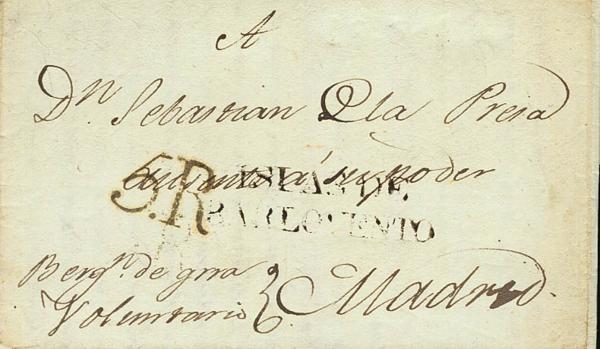 A
Dn Sebastian la Presa
á su poder
5.R
ISLAS DE
BARLOVENTO
Bergn. de grra
Voluntario
Madrid.